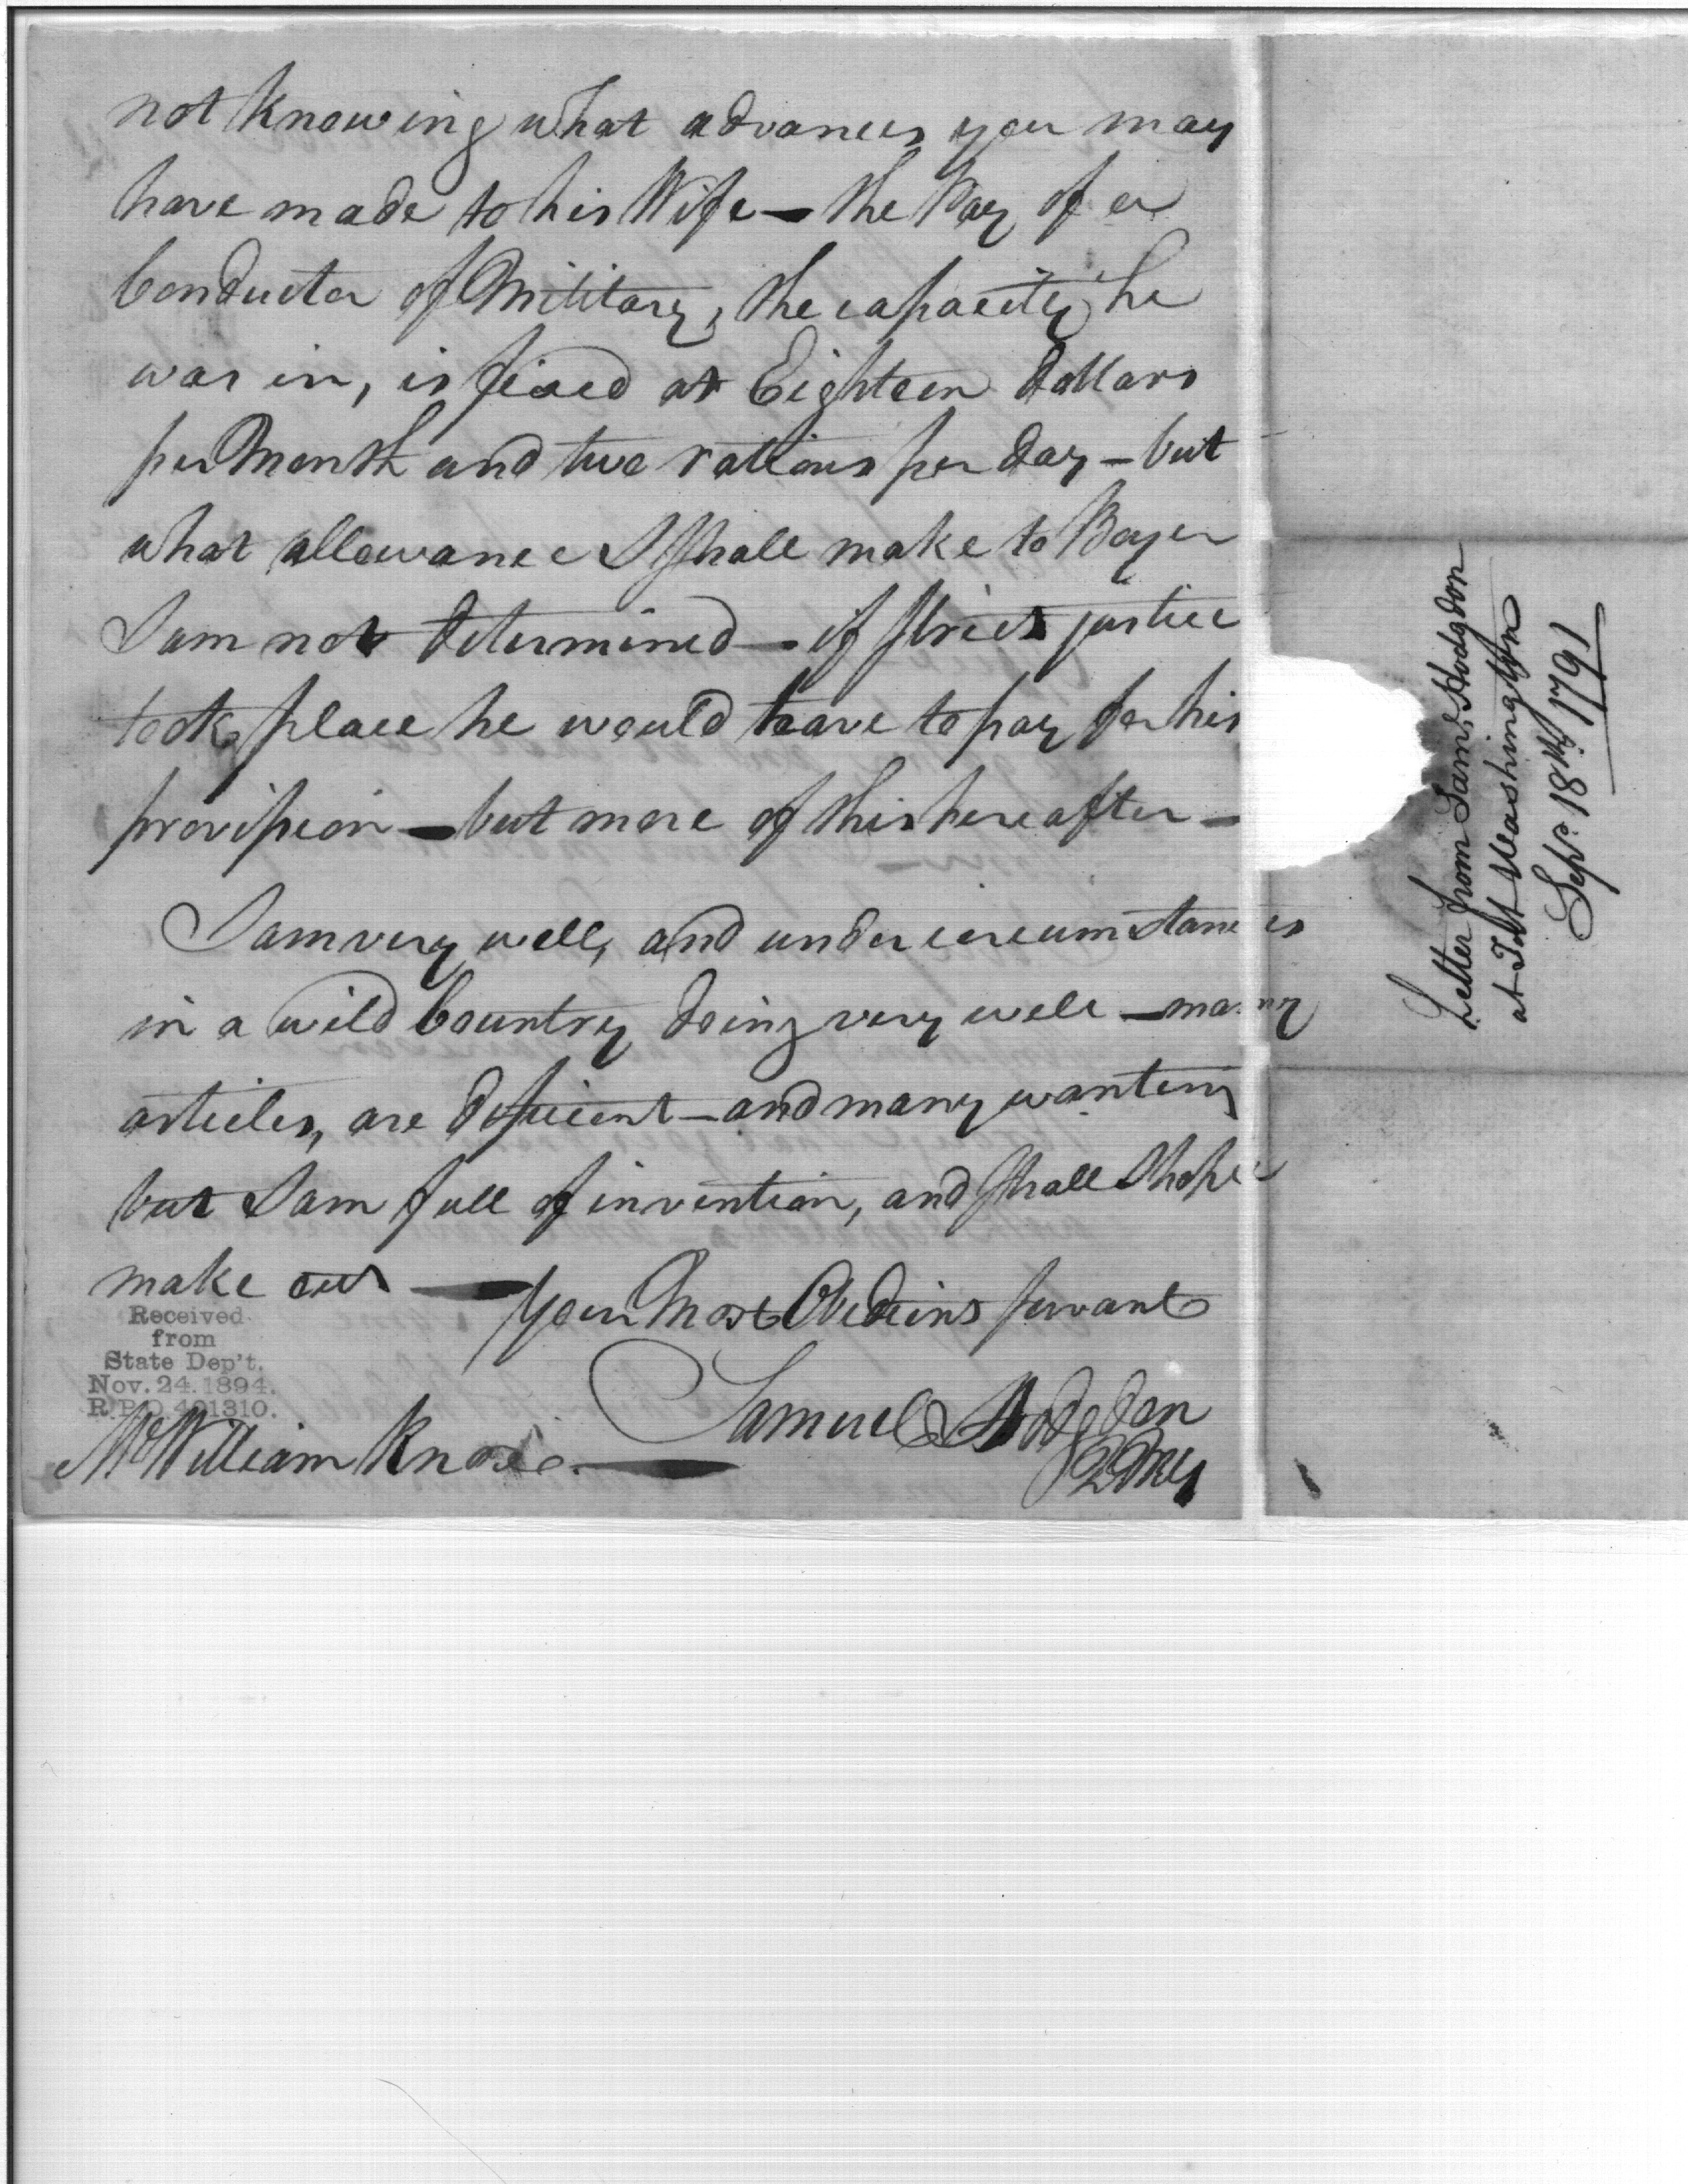 not knowing what advances you may
have made to his Wife — the Pay of a
Conductor of Military, the capacity he
was in, is fixed at Eighteen dollars
per Month and two rations per day — but
what allowance I shall make to Boyer
I am not determined — if strict justice
took place he would have to pay for his
provision — but more of this hereafter —
I am very well, and under circumstances
in a wild Country doing very well — many
articles, are deficient — and many wanting
but I am full of invention, and shall I hope
make out — Your Most Obedient servant
Received
from
State Dep't.
Nov. 24. 1894.
R.P.O. 401310.
Samuel Hodgdon
QMG
Mr William Knox —
Letter from Saml. Hodgdon
at Fort Washington
Sepr. 18th 1791